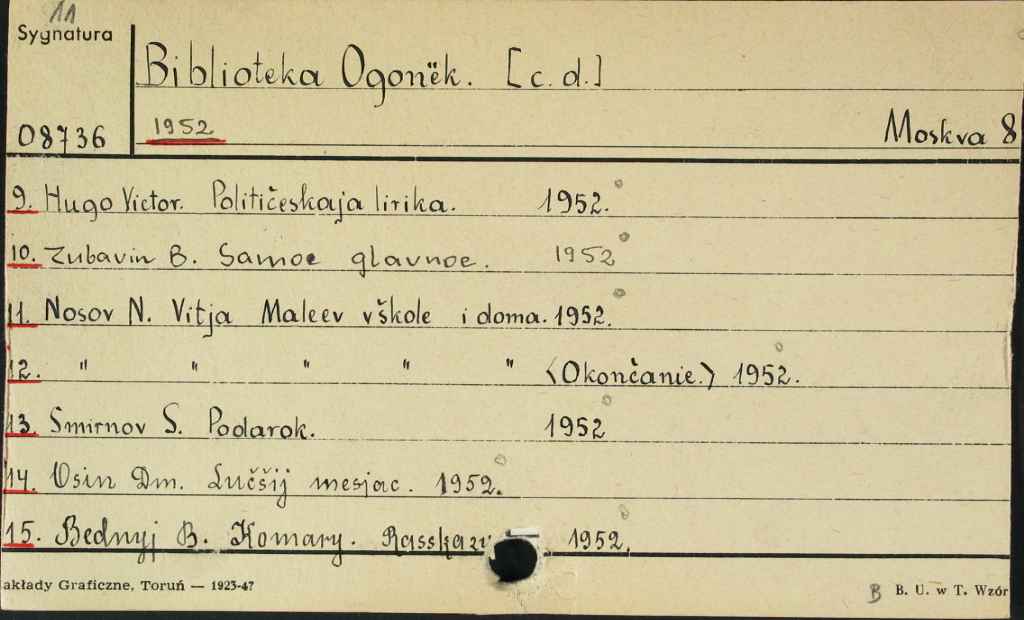 11
Sygnatura
Biblioteka Ogonëk. [c. d.]
08736
1952
Moskva 8
9. Hugo Victor. Političeskaja lirika. 1952.
10. Zubavin B. Samoe glavnoe. 1952
11. Nosov N. Vitja Maleev vškole i doma. 1952.
12. " " " " " <Okončanie.> 1952.
13. Smirnov S. Podarok. 1952
14. Osin Dm. Lučšij mesjac. 1952.
15. Bednyj B. Komary. Rasskazy 1952.
akłady Graficzne, Toruń — 1923-47
B B. U. w T. Wzór